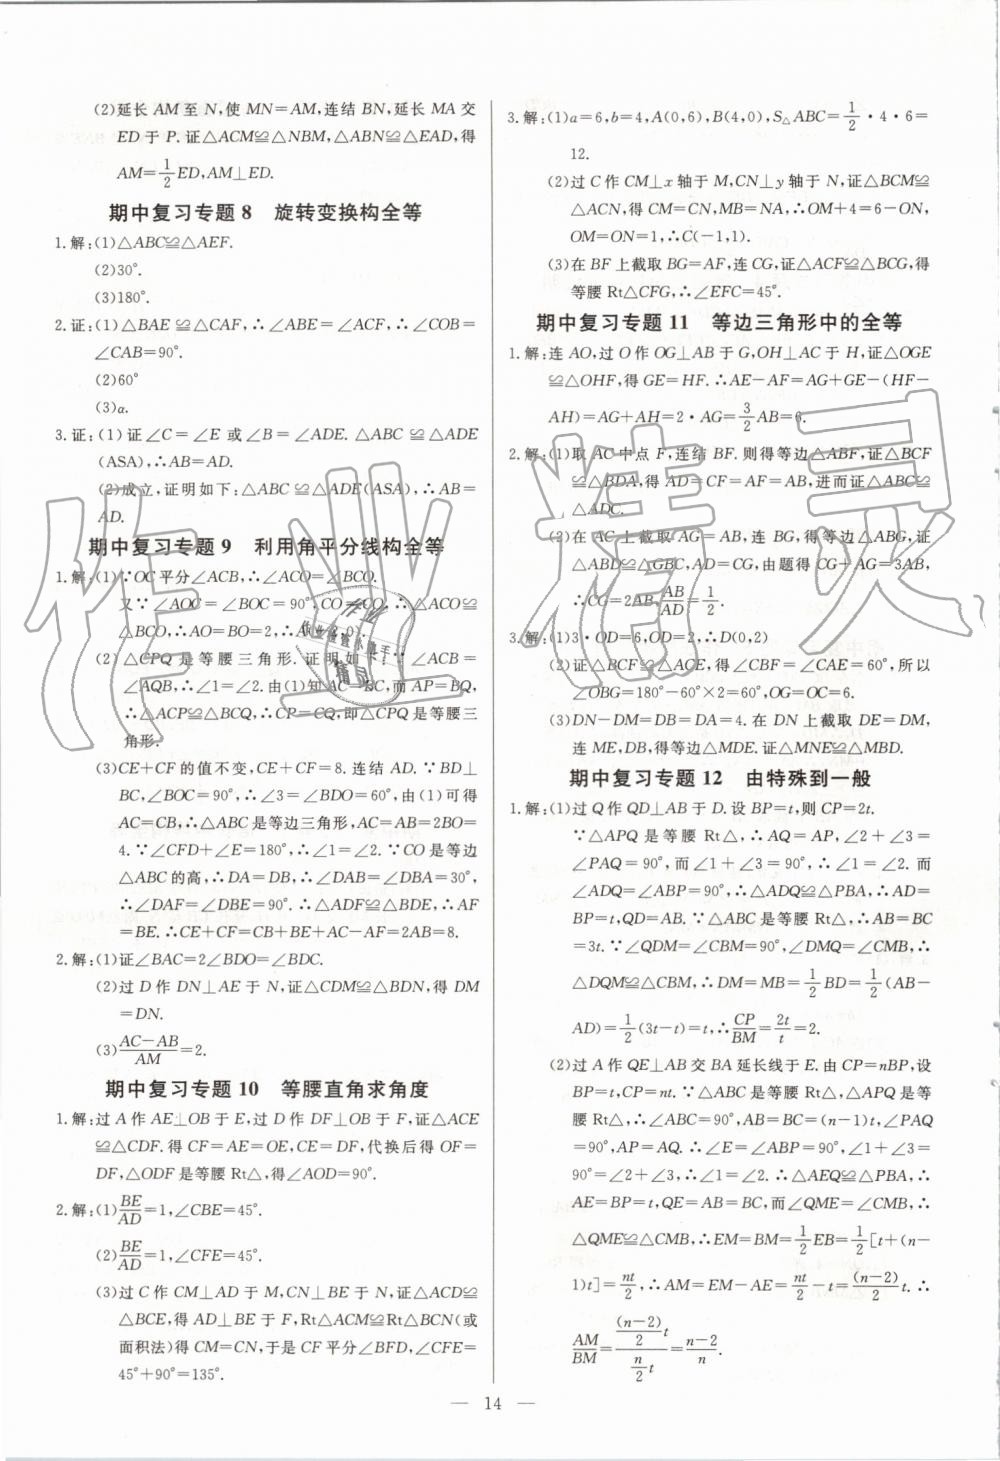 (2)延长 AM 至 N,使 MN=AM,连结 BN,延长 MA 交
ED 于 P. 证△ACM≌△NBM,△ABN≌△EAD,得
AM=1/2ED,AM⊥ED.
期中复习专题 8 旋转变换构全等
1.解:(1)△ABC≌△AEF.
(2)30°.
(3)180°.
2.证:(1)△BAE≌△CAF,∴∠ABE=∠ACF,∴∠COB=
∠CAB=90°.
(2)60°
(3)a.
3.证:(1)证∠C=∠E 或∠B=∠ADE. △ABC≌△ADE
(ASA),∴AB=AD.
(2)成立,证明如下:△ABC≌△ADE(ASA),∴AB=
AD.
期中复习专题 9 利用角平分线构全等
1.解:(1)∵OC平分∠ACB,∴∠ACO=∠BCO.
又∵∠AOC=∠BOC=90°,CO=CO,∴△ACO≌
△BCO,∴AO=BO=2,
(2)△CPQ 是等腰三角形. 证明如下:∵∠ACB=
∠AQB,∴∠1=∠2. 由(1)知 AC=BC,而 AP=BQ,
∴△ACP≌△BCQ,∴CP=CQ,即△CPQ 是等腰三
角形.
(3)CE+CF 的值不变,CE+CF=8. 连结 AD. ∵BD⊥
BC,∠BOC=90°,∴∠3=∠BDO=60°,由(1)可得
AC=CB,∴△ABC 是等边三角形,AC=AB=2BO=
4. ∵∠CFD+∠E=180°,∴∠1=∠2. ∵CO 是等边
△ABC 的高,∴DA=DB,∴∠DAB=∠DBA=30°,
∴∠DAF=∠DBE=90°. ∴△ADF≌△BDE,∴AF
=BE. ∴CE+CF=CB+BE+AC-AF=2AB=8.
2.解:(1)证∠BAC=2∠BDO=∠BDC.
(2)过 D 作 DN⊥AE 于 N,证△CDM≌△BDN,得 DM
=DN.
(3)(AC-AB)/AM=2.
期中复习专题 10 等腰直角求角度
1.解:过 A 作 AE⊥OB 于 E,过 D 作 DF⊥OB 于 F,证△ACE
≌△CDF. 得 CF=AE=OE,CE=DF,代换后得 OF=
DF,△ODF 是等腰 Rt△,得∠AOD=90°.
2.解:(1)BE/AD=1,∠CBE=45°.
(2)BE/AD=1,∠CFE=45°.
(3)过 C 作 CM⊥AD 于 M,CN⊥BE 于 N,证△ACD≌
△BCE,得 AD⊥BE 于 F,Rt△ACM≌Rt△BCN(或
面积法)得 CM=CN,于是 CF 平分∠BFD,∠CFE=
45°+90°=135°.
3.解:(1)a=6,b=4,A(0,6),B(4,0),S△ABC=1/2·4·6=
12.
(2)过 C 作 CM⊥x 轴于 M,CN⊥y 轴于 N,证△BCM≌
△ACN,得 CM=CN,MB=NA,∴OM+4=6-ON,
OM=ON=1,∴C(-1,1).
(3)在 BF 上截取 BG=AF,连 CG,证△ACF≌△BCG,得
等腰 Rt△CFG,∴∠EFC=45°.
期中复习专题 11 等边三角形中的全等
1.解:连 AO,过 O 作 OG⊥AB 于 G,OH⊥AC 于 H,证△OGE
≌△OHF,得 GE=HF. ∴AE-AF=AG+GE-(HF-
AH)=AG+AH=2·AG=3/2AB=6.
2.解:(1)取 AC 中点 F,连结 BF. 则得等边△ABF,证△BCF
≌△BDA,得 AD=CF=AF=AB,进而证△ABC≌
△ADC.
(2)在 AC 上截取 AG=AB,连 BG,得等边△ABG,证
△ABD≌△GBC,AD=CG,由题得 CG+AG=3AB,
∴CG=2AB,AB/AD=1/2.
3.解:(1)3·OD=6,OD=2,∴D(0,2)
(2)证△BCF≌△ACE,得∠CBF=∠CAE=60°,所以
∠OBG=180°-60°×2=60°,OG=OC=6.
(3)DN-DM=DB=DA=4. 在 DN 上截取 DE=DM,
连 ME,DB,得等边△MDE. 证△MNE≌△MBD.
期中复习专题 12 由特殊到一般
1.解:(1)过 Q 作 QD⊥AB 于 D. 设 BP=t,则 CP=2t.
∵△APQ 是等腰 Rt△,∴AQ=AP,∠2+∠3=
∠PAQ=90°,而∠1+∠3=90°,∴∠1=∠2. 而
∠ADQ=∠ABP=90°,∴△ADQ≌△PBA,∴AD=
BP=t,QD=AB. ∵△ABC 是等腰 Rt△,∴AB=BC
=3t. ∵∠QDM=∠CBM=90°,∠DMQ=∠CMB,∴
△DQM≌△CBM,∴DM=MB=1/2BD=1/2(AB-
AD)=1/2(3t-t)=t,∴CP/BM=2t/t=2.
(2)过 A 作 QE⊥AB 交 BA 延长线于 E. 由 CP=nBP,设
BP=t,CP=nt. ∵△ABC 是等腰 Rt△,△APQ 是等
腰 Rt△,∴∠ABC=90°,AB=BC=(n-1)t,∠PAQ
=90°,AP=AQ. ∴∠E=∠ABP=90°,∠1+∠3=
90°=∠2+∠3,∴∠1=∠2. ∴△AEQ≌△PBA,∴
AE=BP=t,QE=AB=BC,而∠QME=∠CMB,∴
△QME≌△CMB,∴EM=BM=1/2EB=1/2[t+(n-
1)t]=nt/2,∴AM=EM-AE=nt/2-t=(n-2)/2t. ∴
AM/BM=((n-2)/2t)/(n/2t)=(n-2)/n.
— 14 —
作业精灵